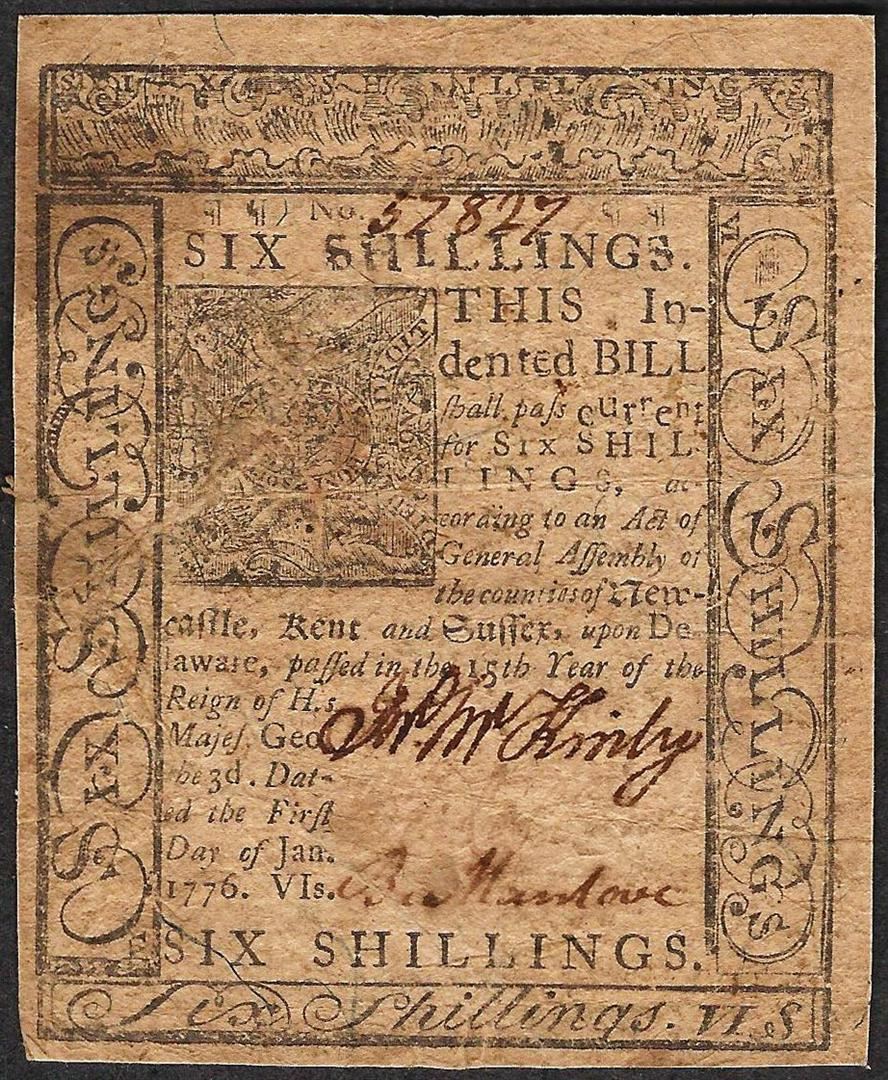 SIX SHILLINGS
No. 57827
SIX SHILLINGS.
THIS In-
dented BILL
shall pass current
for SIX SHIL-
LINGS, ac-
cording to an Act of
General Assembly of
the counties of New-
castle, Kent and Sussex, upon De
laware, passed in the 15th Year of the
Reign of His
Majes. Geo
the 3d. Dat-
ed the First
Day of Jan.
1776. VIs.
McKinly
Manlove
SIX SHILLINGS.
Six Shillings. VI S
SIX SHILLINGS
SIX SHILLINGS
VI
DROIT